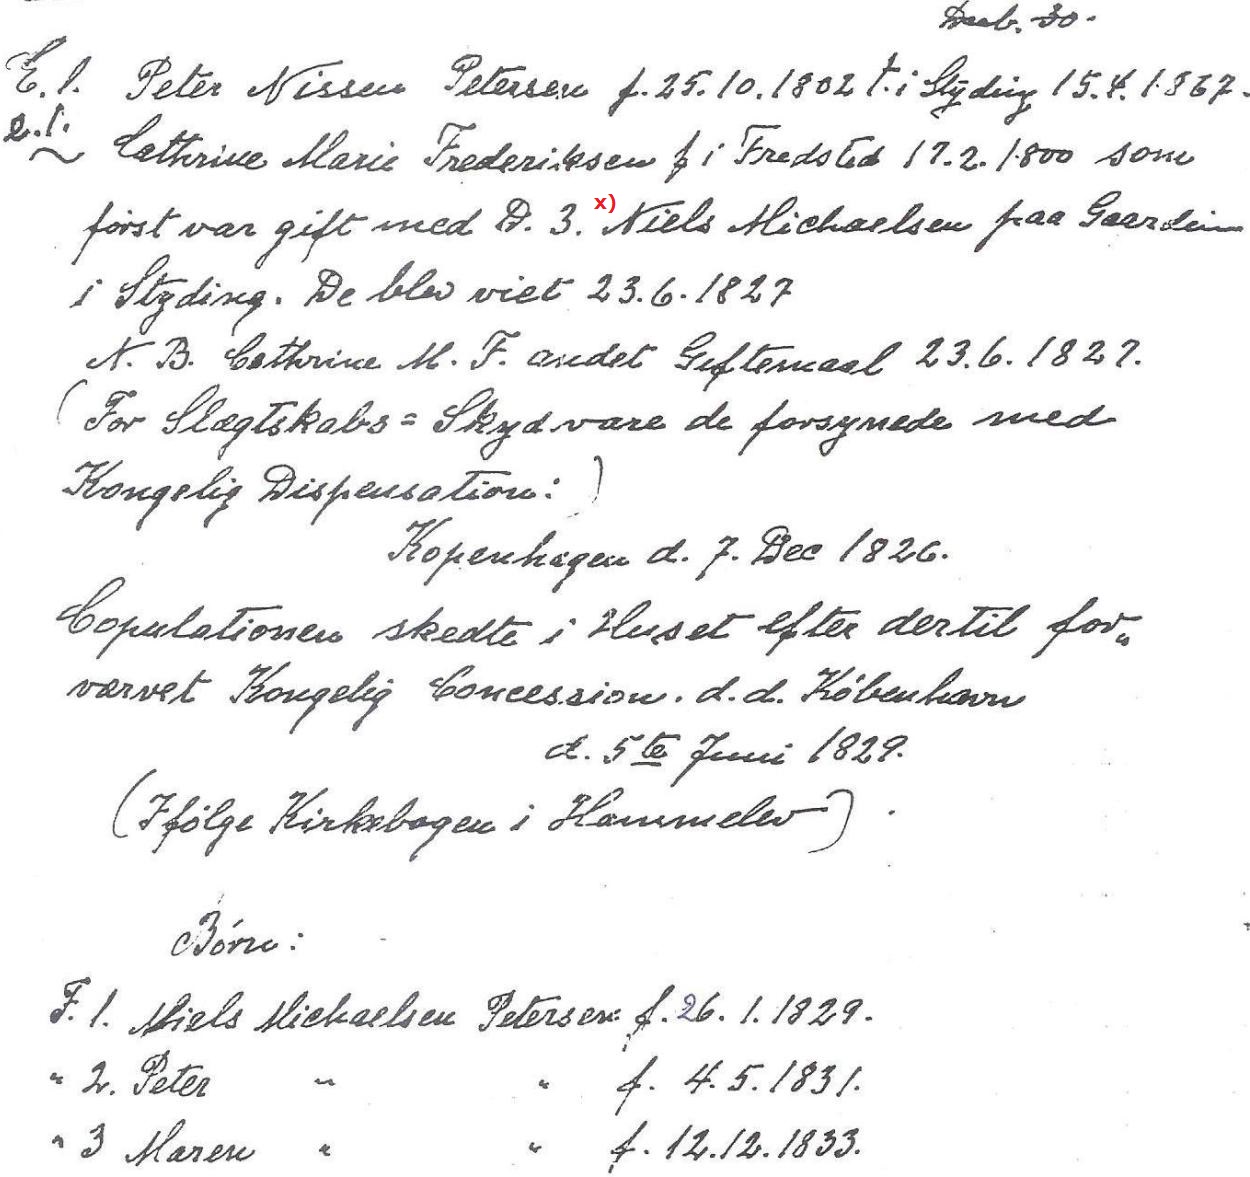 30.
E. 1. Peter Nissen Petersen f. 25.10.1802 †. i Styding 15.4.1867.
2.1.
~ Cathrine Marie Frederiksen f i Fredsted 17.2.1800 som
først var gift med D. 3. x) Niels Michaelsen paa Gaarden
i Styding. De blev viet 23.6.1827
N. B. Cathrine M. F. andet Giftemaal 23.6.1827.
(For Slægtskabs= Skyd vare de forsynede med
Kongelig Dispensation:)
Kopenhagen d. 7. Dec 1826.
Copulationen skedte i Huset efter dertil for„
værvet Kongelig Concession. d.d. København
d. 5te Juni 1829.
(Ifølge Kirkebogen i Hammelev).
Børn:
F. 1. Niels Michaelsen Petersen f. 26.1.1829.
" 2. Peter " " f. 4.5.1831.
" 3 Maren " " f. 12.12.1833.